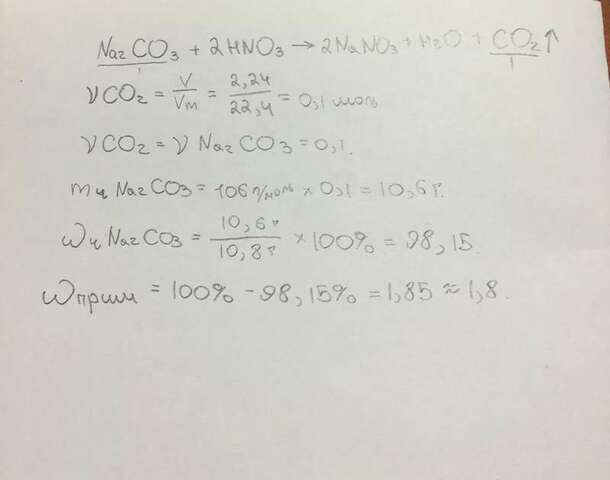 Na2CO3 + 2HNO3 → 2NaNO3 + H2O + CO2↑
νCO2 = V/Vm = 2,24/22,4 = 0,1 моль
νCO2 = ν Na2CO3 = 0,1.
mч Na2CO3 = 106 г/моль × 0,1 = 10,6 г.
ωч Na2CO3 = 10,6 г/10,8 г × 100% = 98,15.
ωприм = 100% - 98,15% = 1,85 ≈ 1,8.